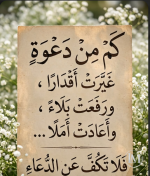 كَمْ مِنْ دَعْوَةٍ
غَيَّرَتْ أَقْدَارًا ،
وَرَفَعَتْ بَلَاءً ،
وَأَعَادَتْ أَمَلًا...
فَلَا تَكُفَّ عَنِ الدُّعَاءِ